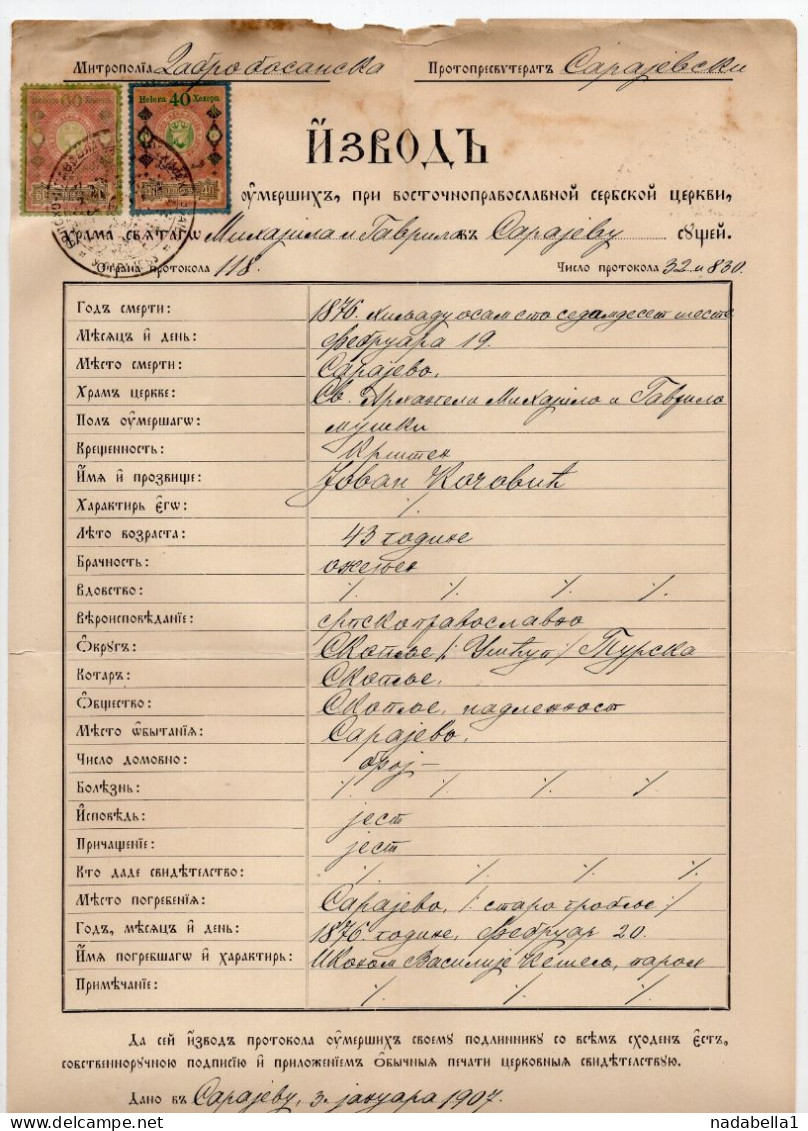 Митрополїа Дабробосанска Протопресвутератъ Сарајевски
Helera 60 Хелера
Helera 40 Хелера
Йзводъ
оумершихъ, при восточноправославной сербской церкви,
храма свѧтагѡ Михајила и Гаврила въ Сарајеву сꙋщей.
Страна протокола 118. Число протокола 32 и 830.
Годъ смерти: 1876. хиљаду осам сто седамдесет шесте
Мѣсяцъ й день: Фебруара 19.
Мѣсто смерти: Сарајево.
Храмъ церкве: Св. Архангели Михајило и Гаврило
Полъ оумершагѡ: мушки
Крещенность: Крштен
Ймѧ й прозвище: Јован Кочовић
Характиръ єгѡ: ·/·
Лѣто возраста: 43 године
Брачность: ожењен
Вдовство: ·/· ·/· ·/· ·/·
Вѣроисповѣданїе: српскоправославно
Ѡкрꙋгъ: Скопље /: Ушћуп :/ Турска
Котаръ: Скопље.
Ѡбщество: Скопље, надлежност
Мѣсто ѡбытанїѧ: Сарајево.
Число домовно: број —
Болѣзнь: ·/· ·/· ·/· ·/·
Йсповѣдь: јест
Причащенїе: јест
Кто даде свидѣтелство: ·/· ·/· ·/· ·/·
Мѣсто погребенїѧ: Сарајево, /: старо гробље :/
Годъ, мѣсяцъ й день: 1876. године, Фебруар 20.
Ймѧ погребшагѡ й характиръ: Иконом Василије парох
Примѣчанїе: ·/· ·/· ·/·
Да сей йзводъ протокола оумершихъ своему подлиннику со всѣмъ сходенъ єсть,
собственноручною подписїю й приложенїемъ ѡбычныѧ печати церковныѧ свидѣтелствую.
Дано въ Сарајеву, 3. јануара 1907.
nadabella1